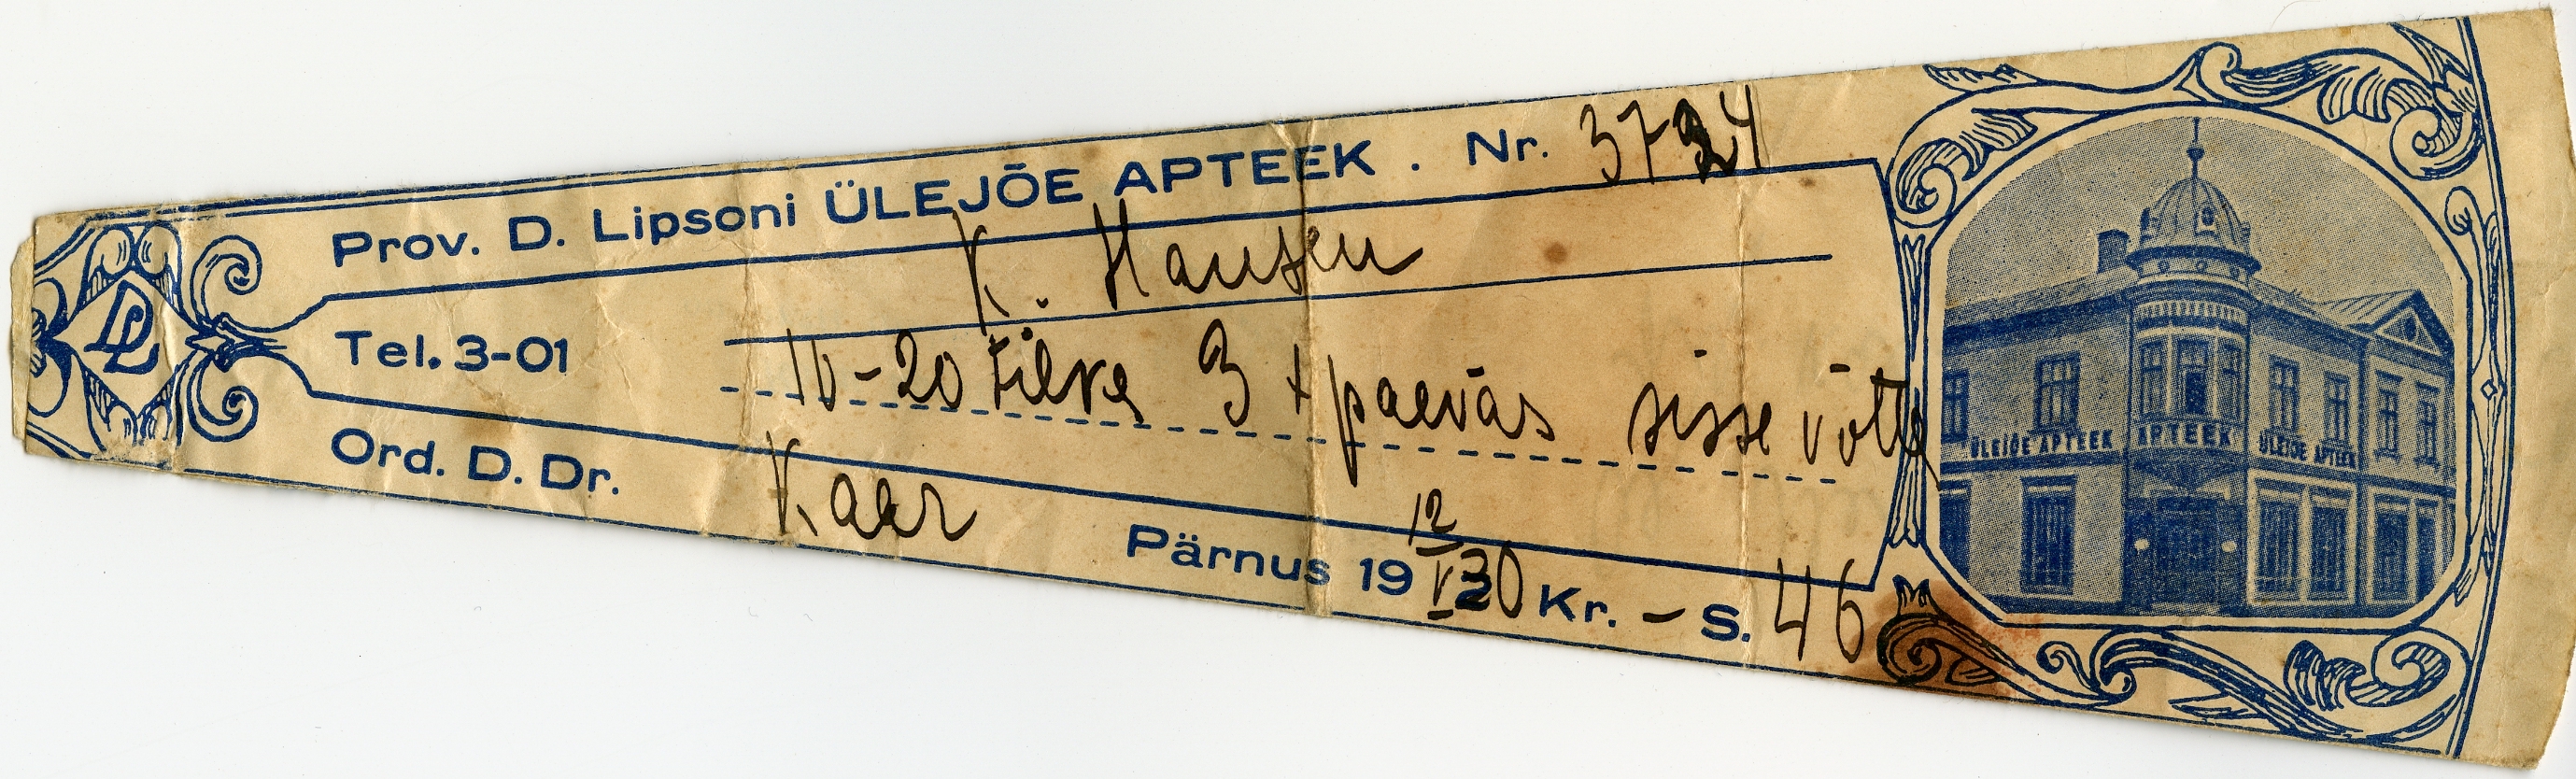 Prov. D. Lipsoni ÜLEJÕE APTEEK. Nr. 3724
K. Hansen
Tel. 3-01
10-20 tilka 3 x päevas sisse võtta
Ord. D. Dr. Kaar
Pärnus 19 12/V 30 Kr. – S. 46
DL
ÜLEJÕE APTEEK APTEEK ÜLEJÕE APTEEK